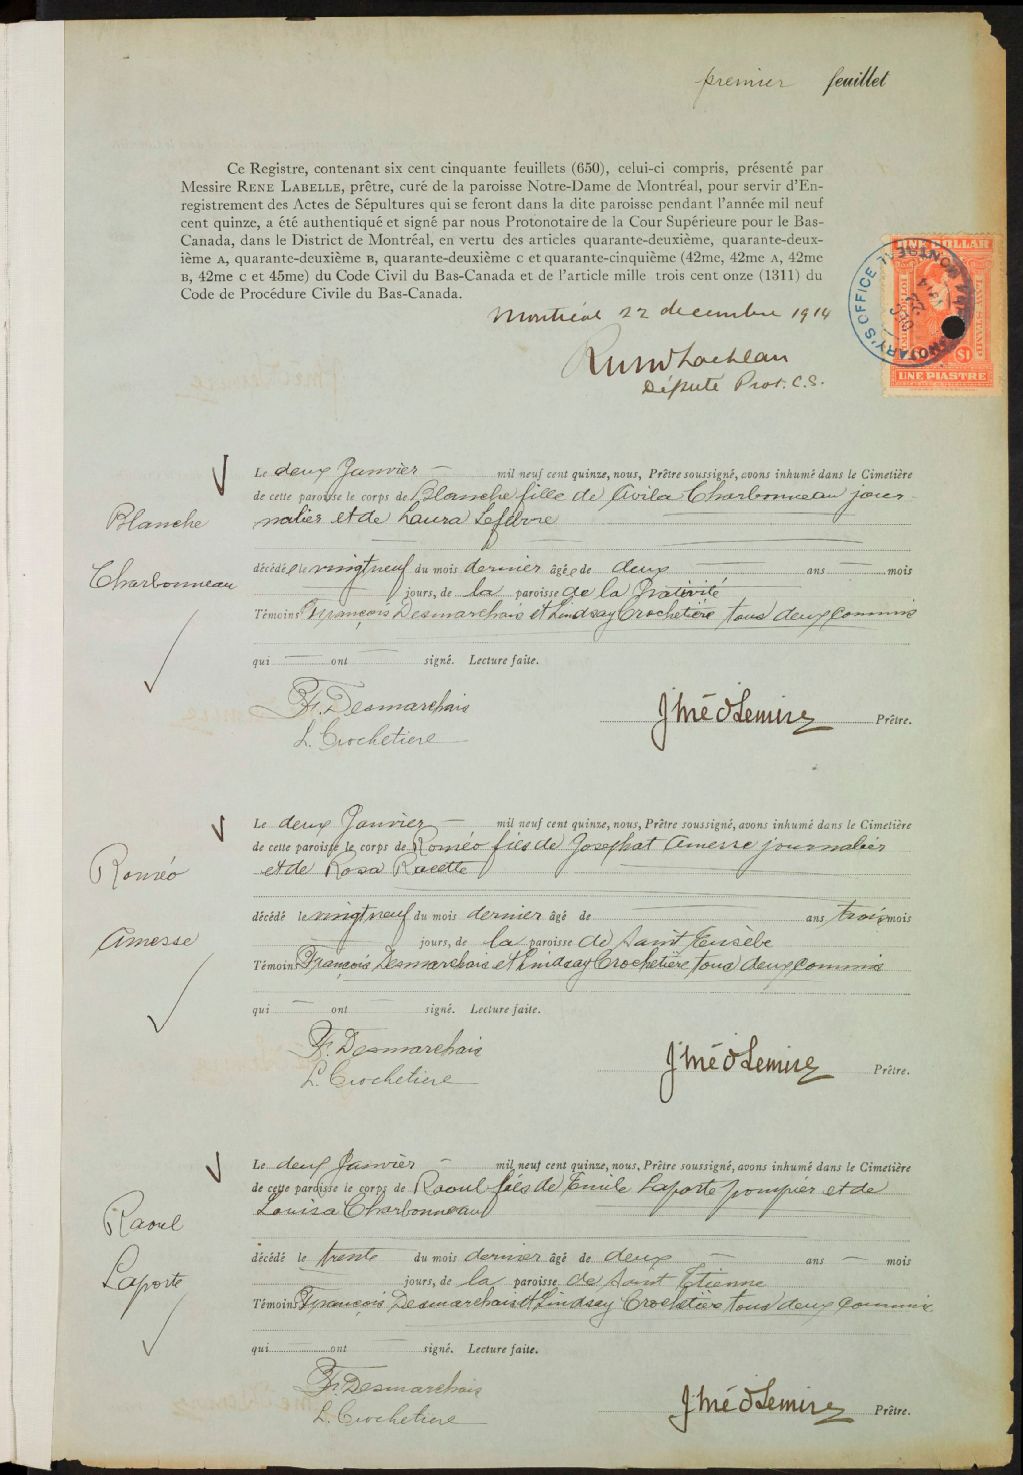 premier feuillet
Ce Registre, contenant six cent cinquante feuillets (650), celui-ci compris, présenté par
Messire RENE LABELLE, prêtre, curé de la paroisse Notre-Dame de Montréal, pour servir d'En-
registrement des Actes de Sépultures qui se feront dans la dite paroisse pendant l'année mil neuf
cent quinze, a été authentiqué et signé par nous Protonotaire de la Cour Supérieure pour le Bas-
Canada, dans le District de Montréal, en vertu des articles quarante-deuxième, quarante-deux-
ième A, quarante-deuxième B, quarante-deuxième C et quarante-cinquième (42me, 42me A, 42me
B, 42me C et 45me) du Code Civil du Bas-Canada et de l'article mille trois cent onze (1311) du
Code de Procédure Civile du Bas-Canada.
Montréal 22 decembre 1914
Député Prot. C.S.
ONE DOLLAR
LAW STAMP
$1
UNE PIASTRE
NOTARY'S OFFICE MONTREAL
DEC 22 1914
Le deux Janvier mil neuf cent quinze, nous, Prêtre soussigné, avons inhumé dans le Cimetière
de cette paroisse le corps de Blanche fille de Avila Charbonneau jour-
nalier et de Laura Lefebvre
Blanche
Charbonneau
décédée le vingt neuf du mois dernier âgée de deux ans mois
jours, de la paroisse de la Nativité
Témoins François Desmarchais et Lindsay Crochetière tous deux commis
qui ont signé. Lecture faite.
F. Desmarchais
L. Crochetiere
J Mé O Lemire Prêtre.
Le deux Janvier mil neuf cent quinze, nous, Prêtre soussigné, avons inhumé dans le Cimetière
de cette paroisse le corps de Roméo fils de Josephat Amesse journalier
et de Rosa Racette
Roméo
Amesse
décédé le vingt neuf du mois dernier âgé de ans, trois mois
jours, de la paroisse de Saint Eusèbe
Témoins François Desmarchais et Lindsay Crochetière tous deux commis
qui ont signé. Lecture faite.
F. Desmarchais
L. Crochetiere
J Mé O Lemire Prêtre.
Le deux Janvier mil neuf cent quinze, nous, Prêtre soussigné, avons inhumé dans le Cimetière
de cette paroisse le corps de Raoul fils de Emile Laporte pompier et de
Louisa Charbonneau
Raoul
Laporte
décédé le trente du mois dernier âgé de deux ans mois
jours, de la paroisse de Saint Etienne
Témoins François Desmarchais et Lindsay Crochetière tous deux commis
qui ont signé. Lecture faite.
F. Desmarchais
L. Crochetiere
J Mé O Lemire Prêtre.